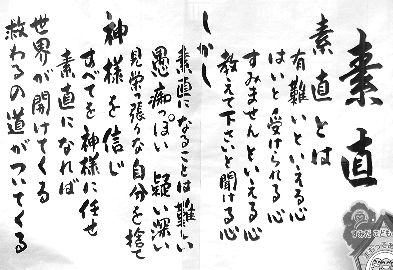 素直
素直とは
有難いといえる心
はいと受けられる心
すみませんといえる心
教えて下さいと聞ける心
しかし
素直になることは難しい
愚痴っぽい 疑い深い
見栄張りな自分を捨て
神様を信じ
すべてを神様に任せ
素直になれば
世界が開けてくる
救わるの道がついてくる